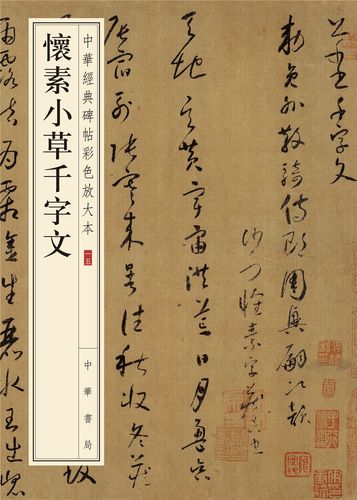 懷素小草千字文
中華經典碑帖彩色放大本
一五
中華書局
千字文
勅員外散騎侍郎周興嗣次韻
沙門懷素字藏真書
天地玄黃宇宙洪荒日月盈昃
辰宿列張寒來暑往秋收冬藏
露結為霜金生麗水玉出崑